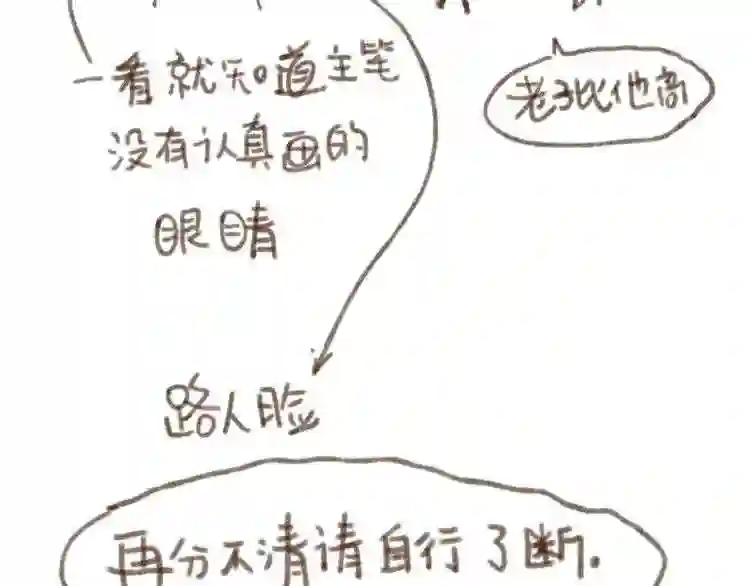 一看就知道主笔
没有认真画的
眼睛
老子比他高
路人脸
再分不清请自行了断.